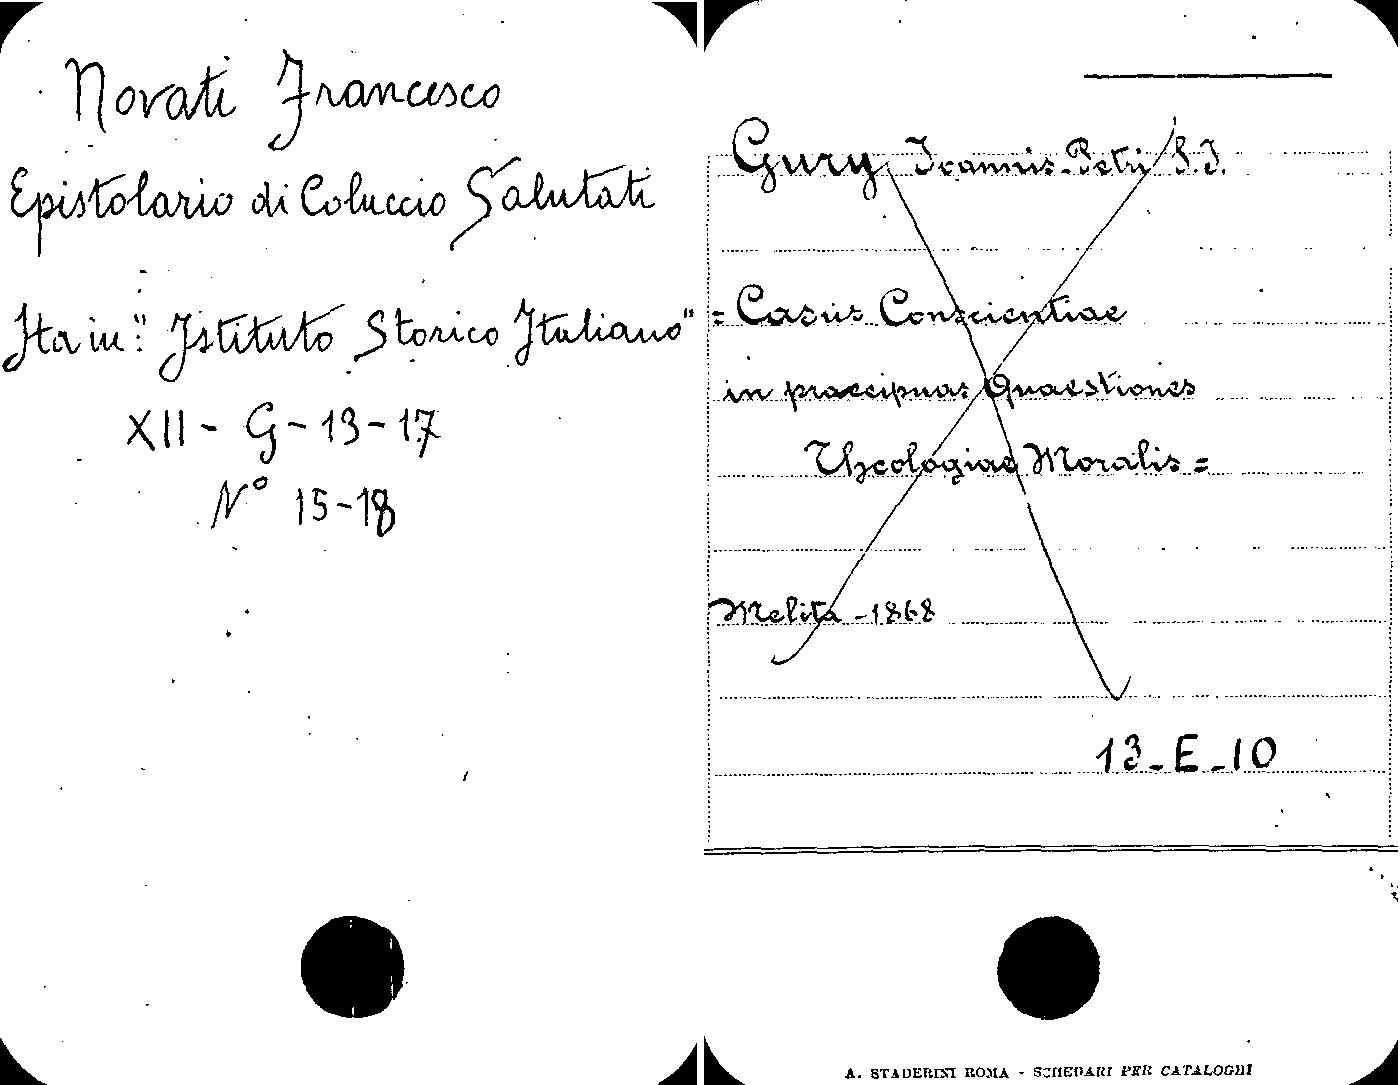 Novati Francesco
Epistolario di Coluccio Salutati
Sta in: "Istituto Storico Italiano"
XII - G - 13 - 17
N° 15 - 18
Gury Ioannis-Petri S.I.
= Casus Conscientiae
in praecipuas Quaestiones
Theologiae Moralis =
Melita - 1868
13 - E - 10
A. STADERINI ROMA - SCHEDARI PER CATALOGHI